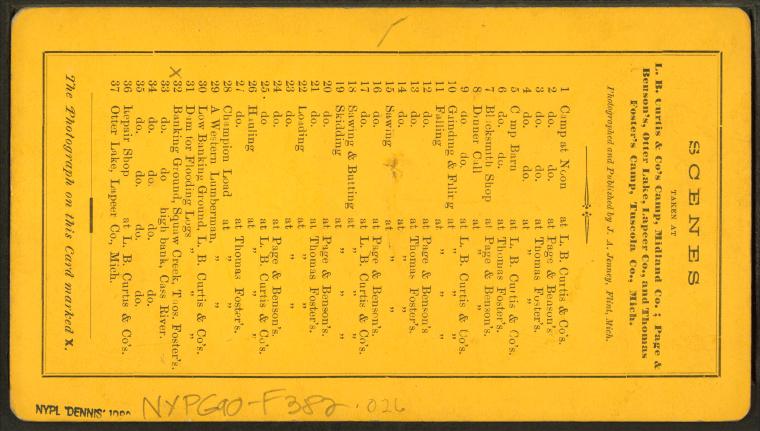 SCENES
TAKEN AT
L. B. Curtis & Co's Camp, Midland Co.; Page &
Benson's, Otter Lake, Lapeer Co., and Thomas
Foster's Camp, Tuscola Co., Mich.
Photographed and Published by J. A. Jenney, Flint, Mich.
1 Camp at Noon at L. B. Curtis & Co's.
2 do. do. at Page & Benson's
3 do. do. at Thomas Foster's.
4 do. do.
5 Camp Barn at L. B. Curtis & Co's.
6 do. do. at Thomas Foster's.
7 Blacksmith Shop at Page & Benson's.
8 Dinner Call " "
9 do do. at L. B. Curtis & Co's.
10 Grinding & Filing at " "
11 Falling at " "
12 do. at Page & Benson's.
13 do. at Thomas Foster's.
14 do. at " "
15 Sawing at " "
16 do. at Page & Benson's.
17 do. at L. B. Curtis & Co's.
18 Sawing & Butting at " "
19 Skidding at " "
20 do. at Page & Benson's.
21 do. at Thomas Foster's.
22 Loading at " "
23 do. at " "
24 do. at Page & Benson's.
25. do. at L. B. Curtis & Co's.
26 Hauling at " "
27. do. at Thomas Foster's.
28 Champion Load at " "
29 A Western Lumberman, " "
30 Low Banking Ground, L. B. Curtis & Co's.
31 Dam for Flooding Logs " " "
X 32 Banking Ground, Squaw Creek, Thos. Foster's.
33. do. do high bank, Cass River.
34 do. do do. do.
35 do. do. do. do.
36 Repair Shop at L. B. Curtis & Co's.
37 Otter Lake, Lapeer Co., Mich.
The Photograph on this Card marked X.
NYPL 'DENNIS'
NYPG90-F382.026